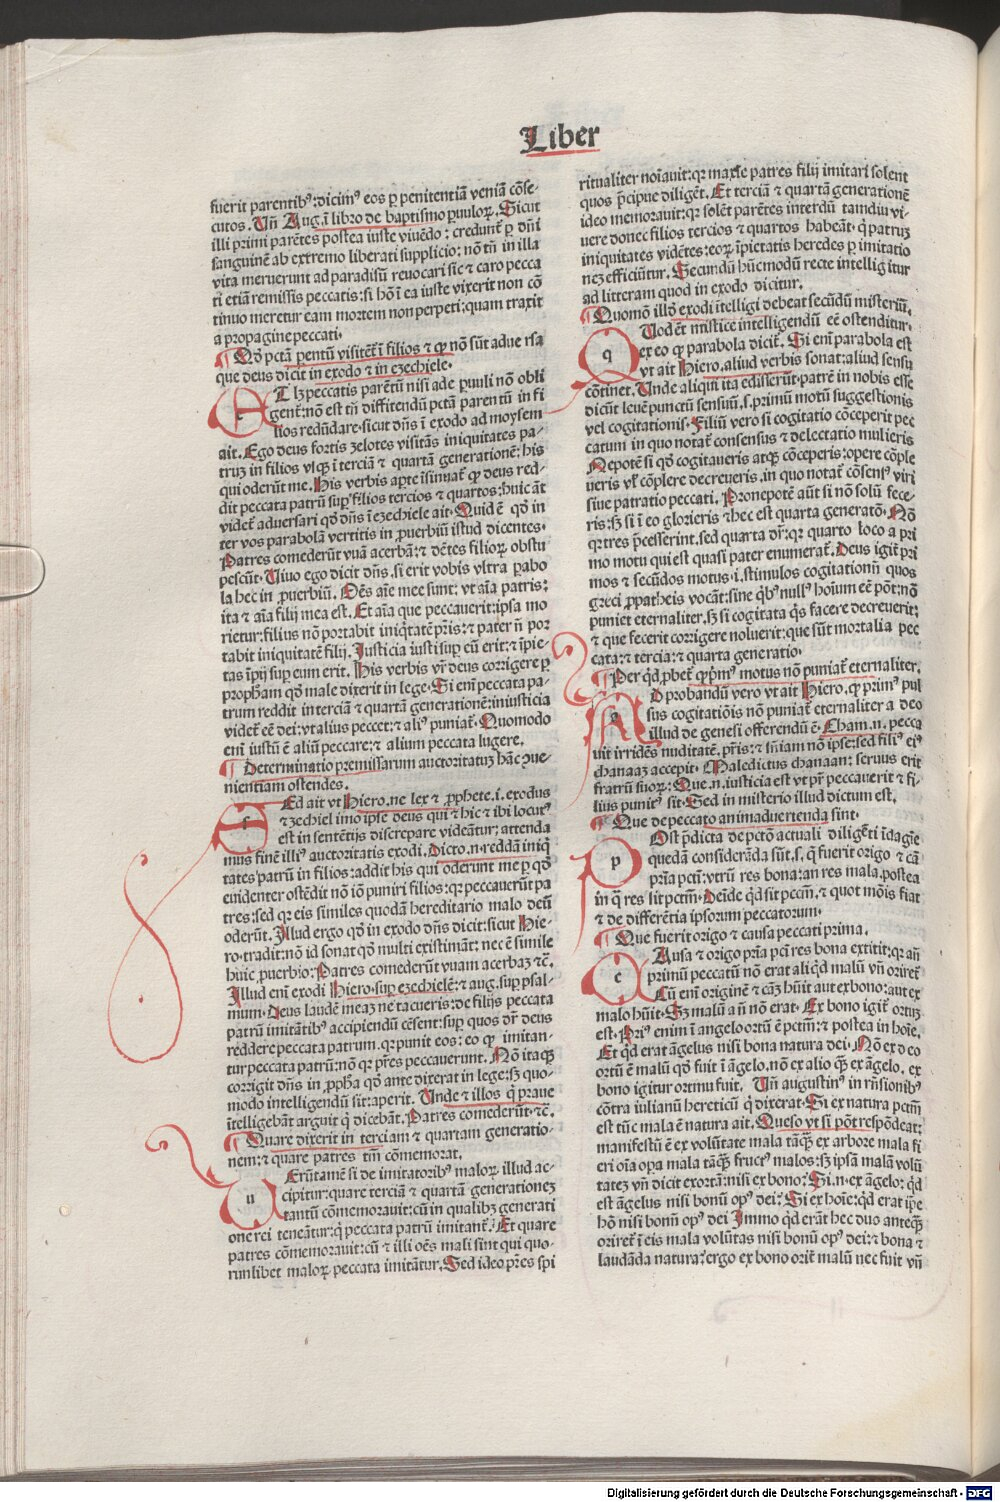 Liber
fuerit parentibꝰ:dicimꝰ eos ꝑ penitentiã veniã cõse-
cutos. Vñ Aug.ĩ libro de baptismo ꝑuuloꝝ. Sicut
illi primi parẽtes postea iuste viuẽdo: credunt᷑ ꝑ dñi
sanguinẽ ab extremo liberati supplicio: nõ tñ in illa
vita meruerunt ad paradisũ reuocari sic ⁊ caro pecca
ti etiã remissis peccatis: si hõ ĩ ea iuste vixerit non cõ
tinuo meretur eam mortem non perpeti: quam traxit
a propagine peccati.
que deus dicit in exodo ⁊ in ezechiele.
T lꝫ peccatis parẽtũ nisi ade ꝑuuli nõ obli
gent᷑: nõ est tñ diffitendũ pctã parentũ in fi
lios redũdare. sicut dñs ĩ exodo ad moysem
ait. Ego deus fortis zelotes visitãs iniquitates pa-
truꝫ in filios vsqꝫ ĩ terciã ⁊ quartã generationẽ: his
qui oderũt me. His verbis aꝑte ĩsinuat᷑ ꝙ deus red-
dit peccata patrũ suꝑ filios tercios ⁊ quartos: huic ãt
videt᷑ aduersari qď dñs ĩ ezechiele ait. Quid ẽ qď in
ter vos parabolã vertitis in ꝓuerbiũ istud dicentes.
Patres comederũt vuã acerbã: ⁊ dẽtes filioꝝ obstu
pescũt. Viuo ego dicit dñs. si erit vobis vltra ꝑabo
la hec in ꝓuerbiũ. Oẽs aĩe mee sunt: vt aĩa patris:
ita ⁊ aĩa filij mea est. Et aĩa que peccauerit: ipsa mo
rietur: filius nõ portabit iniq̃tatẽ pr̃is: ⁊ pater ñ por
tabit iniquitatẽ filij. Justicia iusti suꝑ eũ erit: ⁊ ĩpie-
tas ĩpij suꝑ eum erit. His verbis vr̃ deus corrigere ꝑ
propham qď male dixerit in lege. Si eni᷑ peccata pa-
trum reddit in terciã ⁊ quartã generationẽ: iniusticia
videt᷑ eẽ dei: vt alius peccet: ⁊ aliꝰ puniat᷑. Quomodo
eni᷑ iustũ ẽ aliũ peccare: ⁊ alium peccata lugere.
Determinatio premissarum auctoritatuꝫ hãc ꝯue-
nientiam ostendes.
Ed ait vt Hiero. ne lex ⁊ ꝓphete. i. exodus
⁊ ezechiel imo ipse deus qui ⁊ hic ⁊ ibi locutꝰ
est in sententijs discrepare videãtur: attenda
mus finẽ illiꝰ auctoritatis exodi. Dicto. n. reddã iniq̃
tates patrũ in filios: addit his qui oderunt me ꝑ qď
euidenter ostẽdit nõ iõ puniri filios: qꝛ peccauerũt pa
tres: sed qꝛ eis similes quodã hereditario malo deũ
oderũt. Illud ergo qď in exodo dñs dicit: sicut Hie-
ro. tradit: nõ id sonat qď multi existimãt: nec ẽ simile
huic ꝓuerbio: Patres comederũt vuam acerbaꝫ ⁊c̃.
Illud eni᷑ exodi Hiero. suꝑ ezechielẽ: ⁊ aug. suꝑ psal-
mum. Deus laudẽ meaꝫ ne tacueris: de filijs peccata
patrũ imitãtibꝰ accipiendũ cẽsent: suꝑ quos dr̃ deus
reddere peccata patrum. qꝛ punit eos: eo ꝙ imitan-
tur peccata patrũ: nõ qꝛ pr̃es peccauerunt. Nõ itaqꝫ
corrigit dñs in ꝓpha qď ante dixerat in lege: sꝫ quo-
modo intelligendũ sit: aperit. Unde ⁊ illos q̃ praue
ĩtelligebãt arguit q̃ dicebãt. Patres comederũt. ⁊c̃.
Quare dixerit in terciam ⁊ quartam generatio-
nem: ⁊ quare patres tm̃ cõmemorat.
Erũtamẽ si de imitatoribꝰ maloꝝ illud ac-
cipitur: quare terciã ⁊ quartã generationeꝫ
tantũ cõmemorauit: cũ in qualibꝫ generati
one rei teneãtur: q̃ peccata patrũ imitant᷑. Et quare
patres cõmemorauit: cũ ⁊ illi oẽs mali sint qui quo-
rumlibet maloꝝ peccata imitãtur. Sed ideo pr̃es spi
ritualiter noĩauit: qꝛ maxĩe patres filij imitari solent
quos p̃cipue diligẽt. Et terciã ⁊ quartã generationẽ
ideo memorauit: qꝛ solẽt parẽtes interdũ tamdiu vi-
uere donec filios tercios ⁊ quartos habeãt. q̃ patruꝫ
iniquitates vidẽtes: eoꝝ ĩpietatis heredes ꝑ imitatio
neꝫ efficiũtur. Secundũ hũc modũ recte intelligitur
ad litteram quod in exodo dicitur.
Quomõ illď exodi ĩtelligi debeat secũdũ misteriũ.
Uod ẽt mistice intelligendũ eẽ ostenditur.
ex eo ꝙ parabola dicit᷑. Si eni᷑ parabola est
vt ait Hiero. aliud verbis sonat: aliud sensu
cõtinet. Unde aliqui ita edisserũt. patrẽ in nobis esse
dicũt leuẽ punctũ sensuũ. s. primũ motũ suggestionis
vel cogitationis. Filiũ vero si cogitatio cõceperit pec
catum in quo notat᷑ consensus ⁊ delectatio mulieris
Nepotẽ si qď cogitaueris atqꝫ cõceperis: opere cõple
ueris vꝉ cõplere decreueris. in quo notat᷑ cõsensꝰ viri
siue patratio peccati. Pronepotẽ aũt si nõ solũ fece-
ris: sꝫ si ĩ eo glorieris ⁊ hec est quarta generatõ. Nõ
qꝛ tres p̃cesserint. sed quarta dr̃: qꝛ quarto loco a pri
mo motu qui est quasi pater enumerat᷑. Deus igit᷑ pri
mos ⁊ secũdos motus. i. stimulos cogitationũ quos
greci ꝓpatheis vocãt: sine q̃bꝰ nullꝰ hoĩum eẽ põt: nõ
puniet eternaliter. sꝫ si cogitata q̃s facere decreuerit:
⁊ que fecerit corrigere noluerit: que sũt mortalia pec
cata: ⁊ tercia: ⁊ quarta generatio.
Per qď ꝓbet᷑ ꝙ p̃mꝰ motus nõ puniat᷑ eternaliter.
D probandũ vero vt ait Hiero. ꝙ primꝰ pul
sus cogitatiõis nõ puniat᷑ eternaliter a deo
illud de genesi offerendũ ẽ. Cham. n. pecca
uit irridẽs nuditatẽ. pr̃is: ⁊ sñiam nõ ipse: sed filiꝰ eiꝰ
chanaaꝫ accepit. Maledictus chanaan: seruus erit
fratrũ suoꝝ: Que. n. iusticia est vt pr̃ peccauerit ⁊ fi-
lius punitꝰ sit. Sed in misterio illud dictum est.
Que de peccato animaduertenda sint.
Ost p̃dicta de pctõ actuali diligẽti ĩdagĩe
quedã considerãda sũt. s. q̃ fuerit origo ⁊ cã
prĩa pcti᷑: vtrũ res bona: an res mala. postea
in q̃ res sit pctm̃. Deĩde qď sit pctm̃. ⁊ quot mõis fiat
⁊ de differẽtia ipsorum peccatorum.
Que fuerit origo ⁊ causa peccati prima.
Ausa ⁊ origo prĩa pcti᷑ res bona extitit: qꝛ añ
primũ peccatũ nõ erat aliq̃d malũ vñ oriret᷑
Cũ eni᷑ originẽ ⁊ cãꝫ hũit aut ex bono: aut ex
malo hũit. Sꝫ malũ añ nõ erat. Ex bono igit᷑ ortũꝫ
est. Priꝰ enim ĩ angelo ortũ ẽ pctm̃: ⁊ postea in hoĩe.
Et qď erat ãgelus nisi bona natura dei. Nõ ex deo
ortũ ẽ malũ qď fuit ĩ ãgelo. nõ ex alio qꝫ ex ãgelo. ex
bono igitur ortmu fuit. Vñ augustinꝰ in rñsionibꝰ
cõtra iulianũ hereticũ q̃ dixerat. Si ex natura pctm̃
est tũc mala ẽ natura ait. Queso vt si põt respõdeat:
manifestũ ẽ ex volũtate mala tãqꝫ ex arbore mala fi
eri oĩa oꝑa mala tãqꝫ fructꝰ malos: sꝫ ipsã malã volũ
tateꝫ vñ dicit exortã: nisi ex bono: Si. n. ex ãgelo: qď
est ãgelus nisi bonũ opꝰ dei: Si ex hoĩe: qď erat ip̃e
hõ nisi bonũ opꝰ dei Immo qď erãt hec duo anteqꝫ
oriret᷑ ĩ eis mala volũtas nisi bonũ opꝰ dei: ⁊ bona ⁊
laudãda natura: ergo ex bono orit᷑ malũ nec fuit vñ
Digitalisierung gefördert durch die Deutsche Forschungsgemeinschaft - DFG